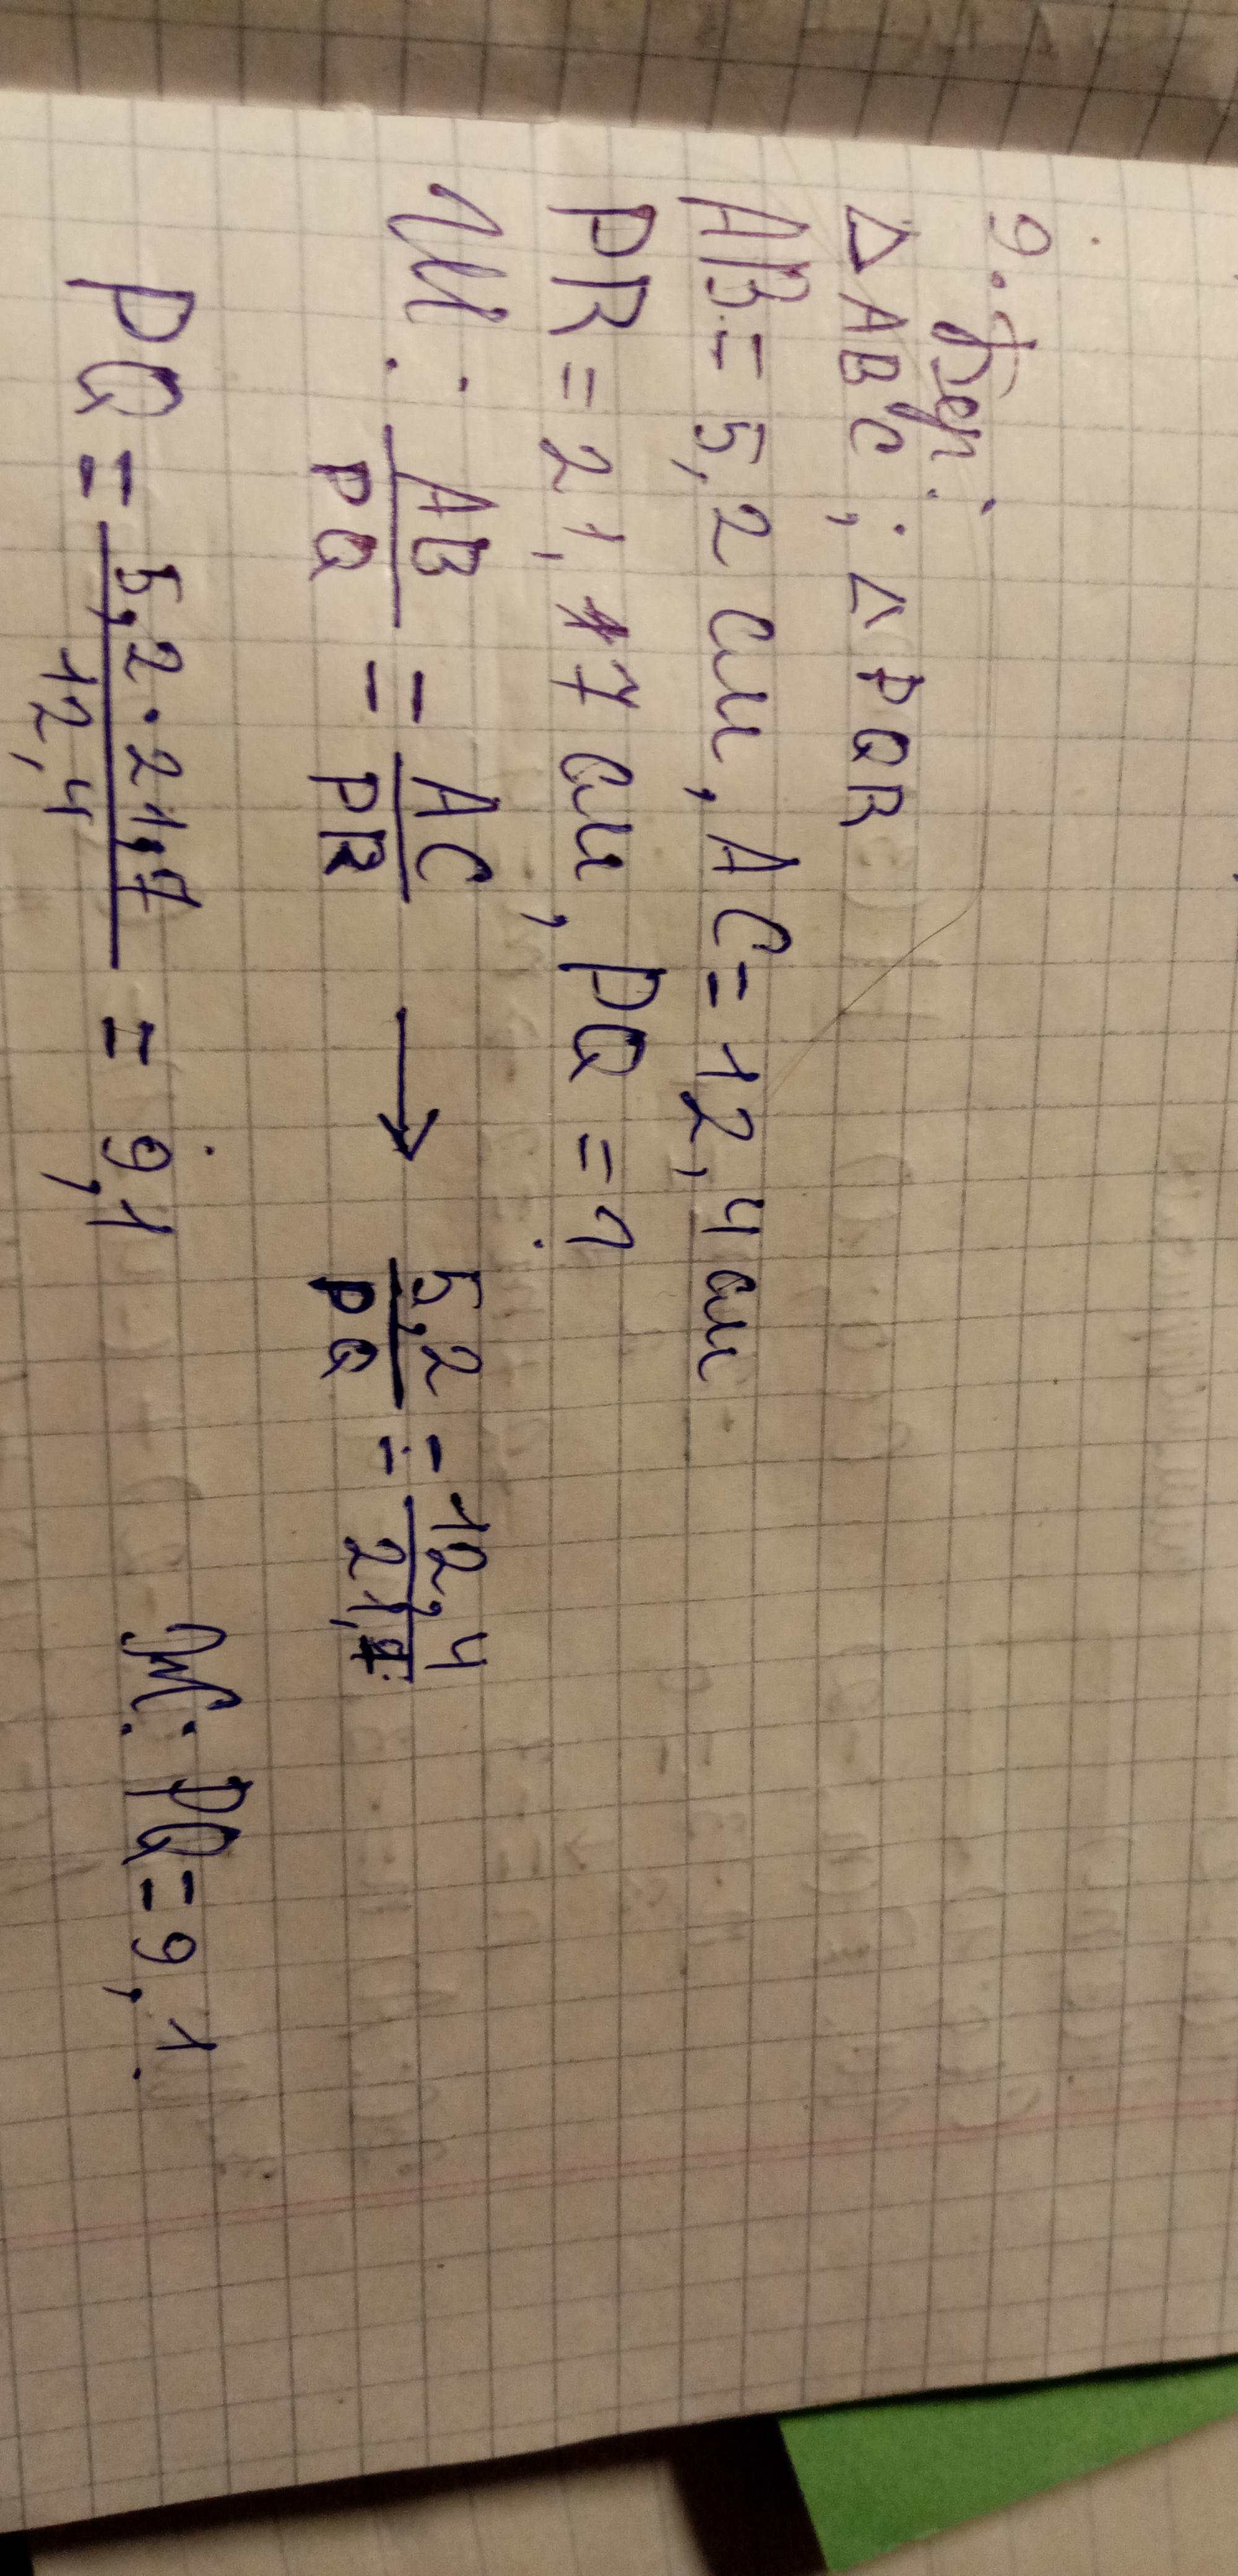 9. Бер:
△ABC; △PQR
AB = 5,2 см, AC = 12,4 см
PR = 21,7 см, PQ = ?
Ш: AB/PQ = AC/PR → 5,2/PQ = 12,4/21,7
PQ = 5,2 · 21,7/12,4 = 9,1
Ж: PQ = 9,1.